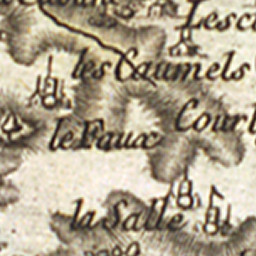 Lesc
les Caumels
le Faux
Courb
la Salle